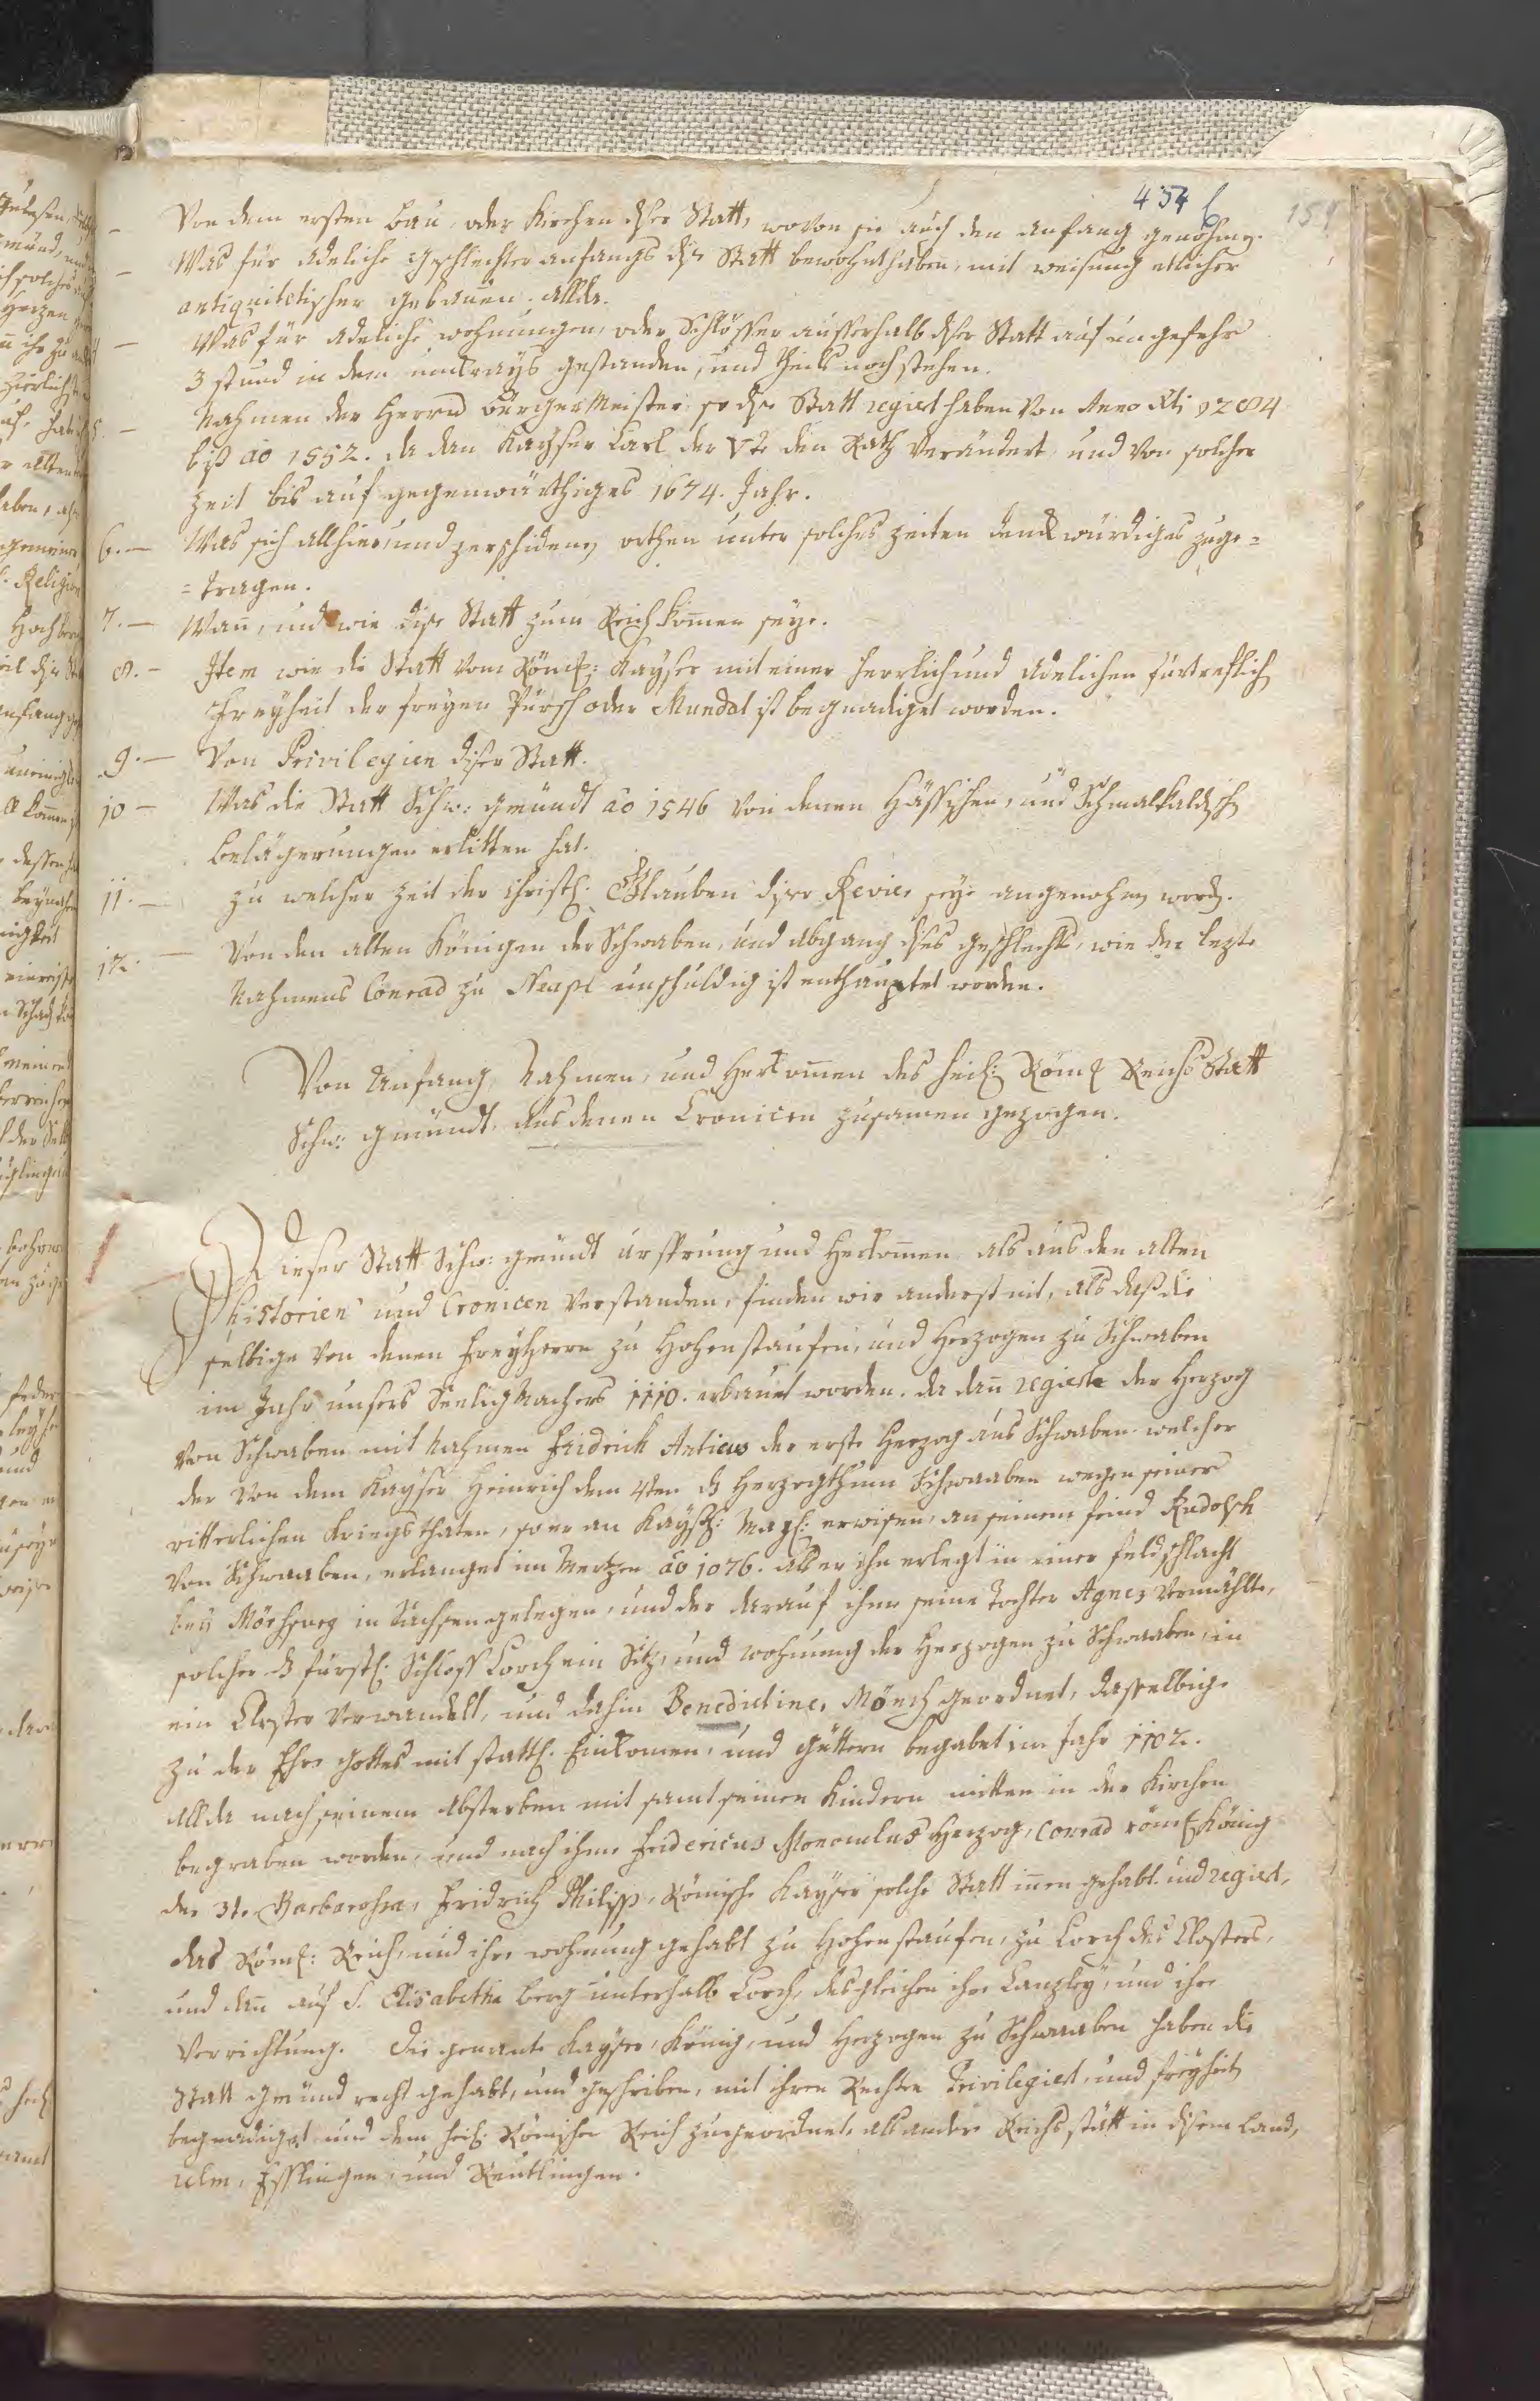 454
154
– Von dem ersten bau, oder Kirchen diser Statt, wovon sie auch den anfang genohmen.
– Was für Adeliche geschlechter anfangs dise Statt bewohnt haben, mit weisung etlicher
antiquitetischer gebäuen. allda.
– Was für Adeliche wohnungen, oder Schlösser ausserhalb diser Statt auf ungefehr
3 stund in dem umkrays gestanden, und theils noch stehen.
5. – Nahmen der Herrn burgerMeister, so dise Statt regiert haben von Anno Xti 1284
biß ao 1552. da dan Kayser Carl der Vte den Rath verändert, und von solcher
zeit bis auf gegenwärthiges 1674. Jahr.
6. – Was sich allhier, und zerschidenen orthen unter solches zeiten denckwürdiges zuge=
=tragen.
7. – Wan̄, und wie dise Statt zum Reich kom̄en seye.
8. – Item wie die Statt vom Röm: Kayser mit einer herrlich und Adelichen fürtreflich
Freyheit der freyen Pürsch oder Mundat ist begnadiget worden.
9. – Von Privilegien diser Statt.
10 – Was die Statt Schw: gmündt ao 1546 von denen Hässischen, und Schmalkaldisch
belägerungen erlitten hat.
11. – Zu welcher zeit der Christl: Glauben diser Revier seye angenohmen word.
12. – Von den alten Königen der Schwaben, und abgang dises geschlechts, wie der lezte
Nahmens Conrad zu Neapl unschuldig ist enthauptet worden.
Von Anfang, Nahmen, und Herkom̄en des heil: Röm Reichs Statt
Schw: gmündt, aus denen Cronicen zusamen gezogen.
Dieser Statt Schw: gmündt ursprung und Herkom̄en als aus den alten
historien und Cronicen verstanden, finden wir anderst nit, als daß die
selbige von denen Freyherrn zu Hohenstaufen, und Herzogen zu Schwaben
im Jahr unsers Seeligmachers 1110. erbauet worden. da dan̄ regierte der Herzog
von Schwaben mit Nahmen Fridrich Anticus der erste Herzog aus Schwaben welcher
der von dem Kayser Heinrich dem 4ten ds Herzogthum Schwaaben wegen seiner
ritterlichen kriegsthaten, so er an Kaysl: May: erwisen, an seinem feind Rudolph
von Schwaaben, erlanget im Mertzen ao 1076. als er ihn erlegt in einer feldschlacht
bey Mörspurg in Sachsen gelegen, und der darauf ihm seine Tochter Agnes vermählte,
solcher ds fürstl: Schloss Lorch ein Sitz, und wohnung der Herzogen zu Schwaaben, in
ein Closter verwandelt, und dahin Benedictiner Mönch geordnet, dasselbige
zu der Ehre Gottes mit stattl: Einkomen, und güttern begabet im Jahr 1102.
allda nach seinem absterben mit samt seinen Kindern mitten in der Kirchen
begraben worden, und nach ihm Fridericus Monoculus Herzog, Conrad röm König
der 3te Barbarossa, Fridrich Philipp, Römische Kayser solche Statt in̄en gehabt und regiert,
das Röml: Reich, und ihre wohnung gehabt zu Hohenstaufen, zu Lorch des Closters,
und dan̄ auf S. Elisabetha berg unterhalb Lorch, desgleichen ihre Canzley, und ihre
Verrichtung. Die genante Kayser, König, und Herzogen zu Schwaaben haben die
Statt gmünd recht gehabt, und geschriben, mit ihren Rechten Privilegiert, und freyheit
begnadiget und dem heil: Römischen Reich zugeordnet, als andere Reichs stätt in disem Land,
Ulm, Esslingen, und Reutlingen.